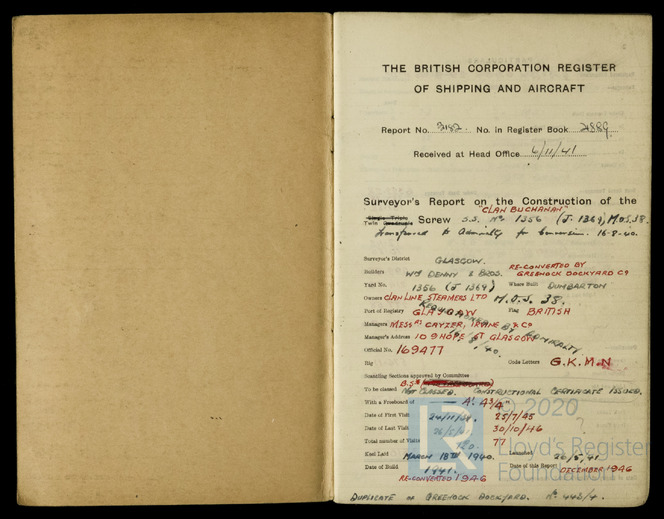 THE BRITISH CORPORATION REGISTER
OF SHIPPING AND AIRCRAFT
Report No. 3182. No. in Register Book 21889.
Received at Head Office 6/11/41
Surveyor's Report on the Construction of the
"CLAN BUCHANAN"
Single Triple
Twin Quadruple Screw S.S. No 1356 (J. 1369) M.O.S. 38.
Transferred to Admiralty for Conversion. 16-8-40.
Surveyor's District GLASGOW.
Builders Wm DENNY & BROS. RE-CONVERTED BY GREENOCK DOCKYARD Co
Yard No. 1356 (J 1369) Where Built DUMBARTON
Owners CLAN LINE STEAMERS LTD M.O.S. 38.
Port of Registry GLASGOW Flag BRITISH
Managers MESSRS CAYZER, IRVINE & Co
Manager's Address 109 HOPE ST GLASGOW
REQUISITIONED BY ADMIRALTY
Official No. 169477
Rig Code Letters G.K.M.N
Scantling Sections approved by Committee
To be classed B.S* NOT CLASSED. CONSTRUCTIONAL CERTIFICATE ISSUED.
With a Freeboard of A. 4¾"
Date of First Visit 24/11/39 25/7/45
Date of Last Visit 30/10/46
Total number of Visits 77
Keel Laid MARCH 18TH 1940. Launched
Date of Build 1941. Date of this Report DECEMBER 1946
RE-CONVERTED 1946
DUPLICATE OF GREENOCK DOCKYARD. No. 443/4.
© 2020
LR
Lloyd's Register
Foundation